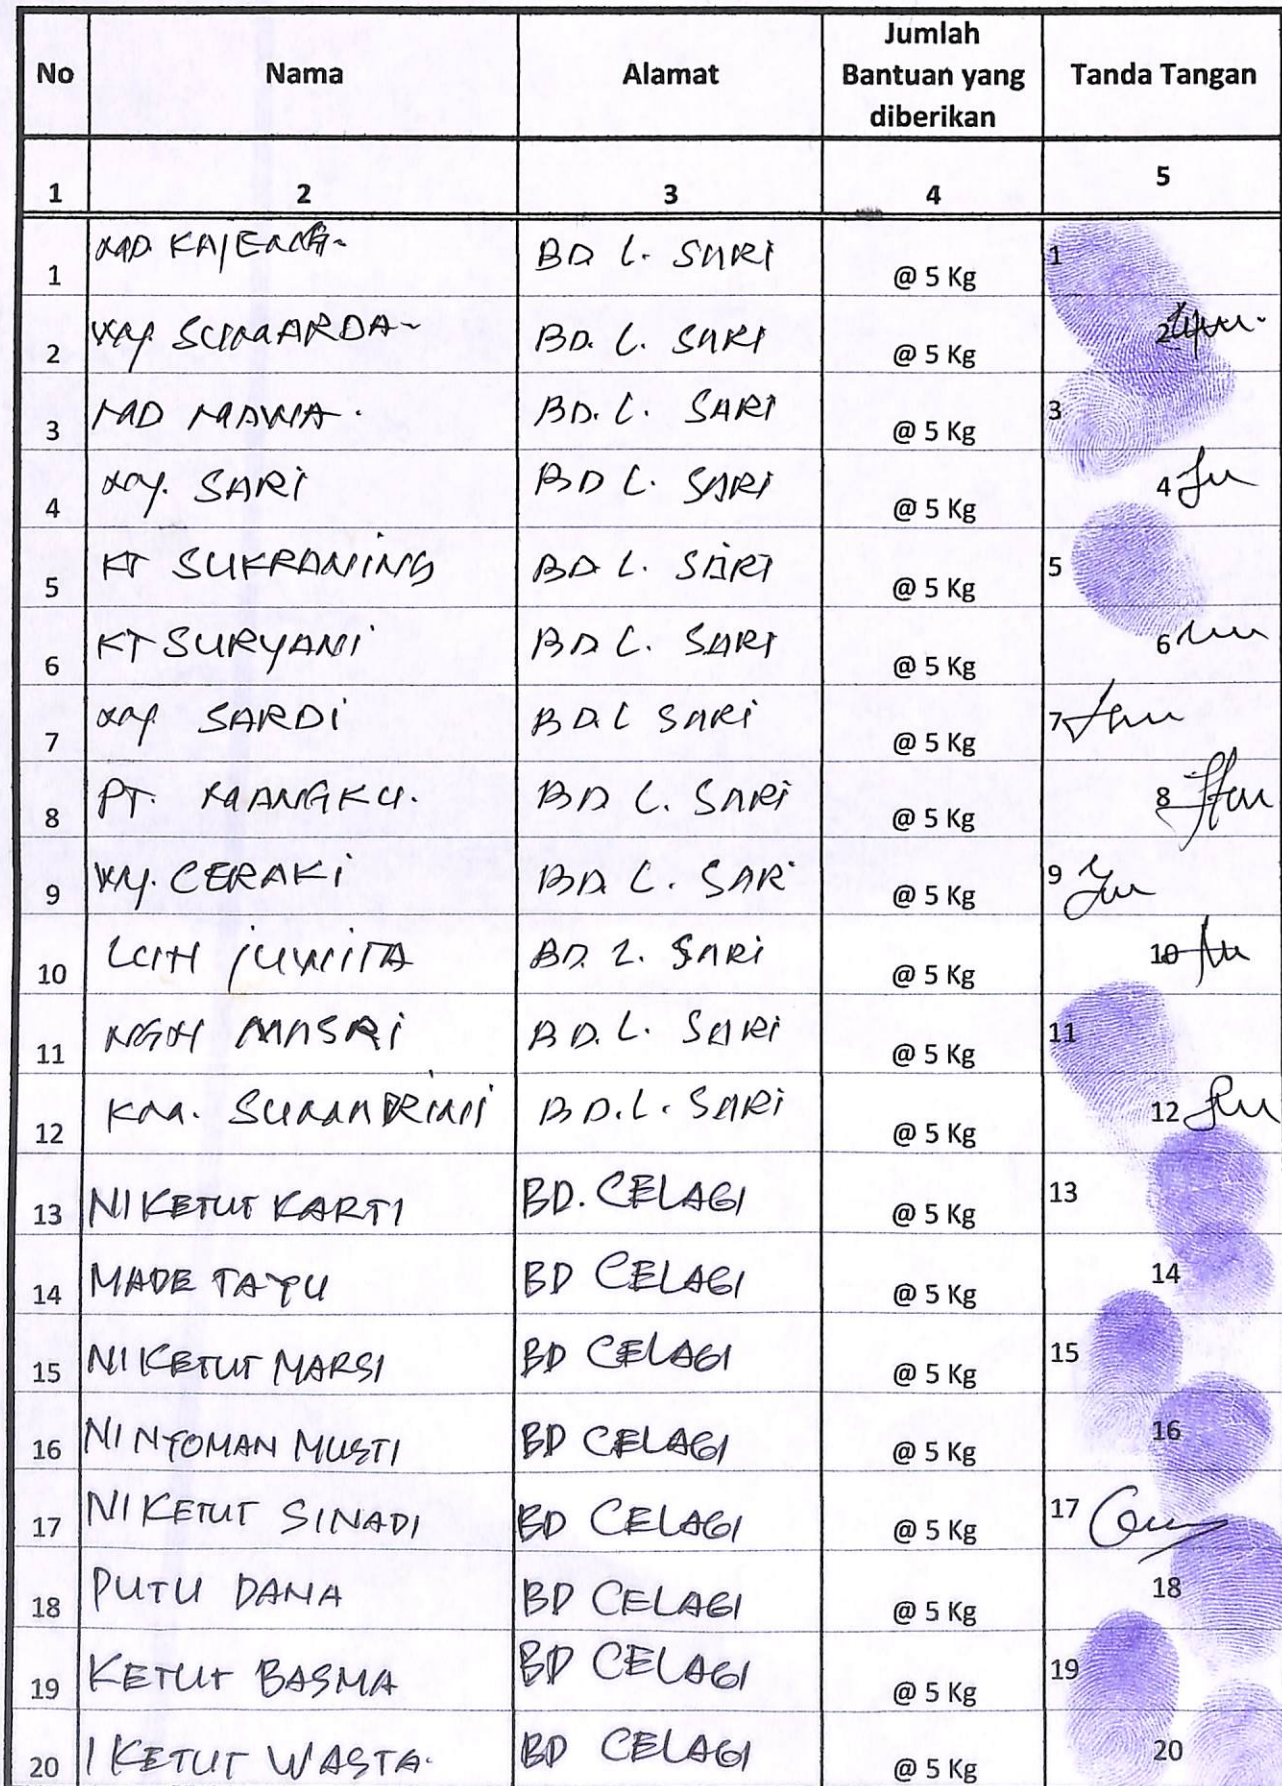 No Nama Alamat Jumlah Bantuan yang diberikan Tanda Tangan
1 2 3 4 5
1 MD. KAJENG- BD L. SARI @ 5 Kg 1
2 WY. SUMARDA- BD. L. SARI @ 5 Kg 2
3 MD MAWA. BD. L. SARI @ 5 Kg 3
4 WY. SARI BD L. SARI @ 5 Kg 4
5 KT SUKRANING BD L. SARI @ 5 Kg 5
6 KT SURYANI BD L. SARI @ 5 Kg 6
7 WY SARDI BD. L SARI @ 5 Kg 7
8 PT. MANGKU. BD L. SARI @ 5 Kg 8
9 WY. CERAKI BD. L. SARI @ 5 Kg 9
10 LUH JUWITA BD. L. SARI @ 5 Kg 10
11 NGH MASRI BD. L. SARI @ 5 Kg 11
12 KM. SUMANDRIANI BD. L. SARI @ 5 Kg 12
13 NI KETUT KARTI BD. CELAGI @ 5 Kg 13
14 MADE TAYU BD CELAGI @ 5 Kg 14
15 NI KETUT MARSI BD CELAGI @ 5 Kg 15
16 NI NYOMAN MUSTI BD CELAGI @ 5 Kg 16
17 NI KETUT SINADI BD CELAGI @ 5 Kg 17
18 PUTU DANA BD CELAGI @ 5 Kg 18
19 KETUT BASMA BD CELAGI @ 5 Kg 19
20 I KETUT WASTA. BD CELAGI @ 5 Kg 20